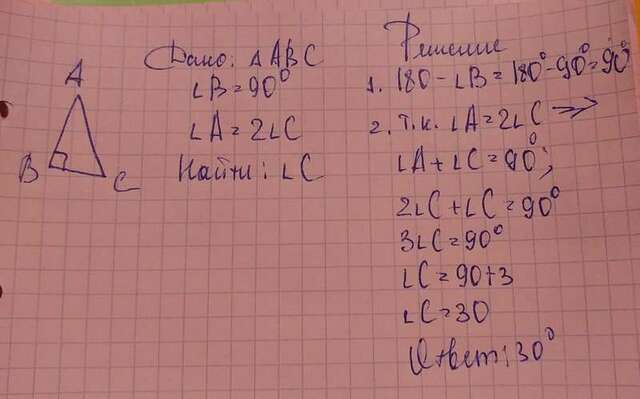 A
B
C
Дано: ΔABC
∠B = 90°
∠A = 2∠C
Найти: ∠C
Решение
1. 180 - ∠B = 180° - 90° = 90°
2. т.к. ∠A = 2∠C =>
∠A + ∠C = 90°;
2∠C + ∠C = 90°
3∠C = 90°
∠C = 90+3
∠C = 30
Ответ: 30°